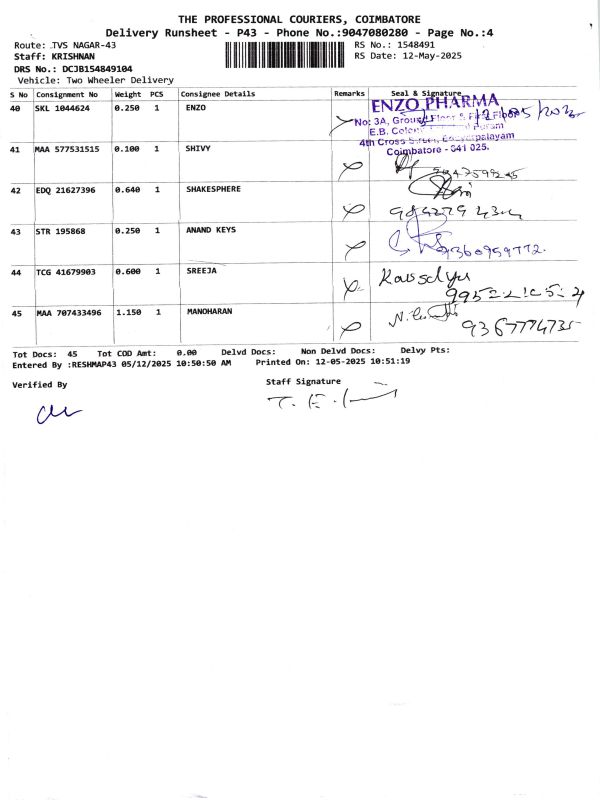 THE PROFESSIONAL COURIERS, COIMBATORE
Delivery Runsheet - P43 - Phone No.:9047080280 - Page No.:4
Route: TVS NAGAR-43 RS No.: 1548491
Staff: KRISHNAN RS Date: 12-May-2025
DRS No.: DCJB154849104
Vehicle: Two Wheeler Delivery
S No Consignment No Weight PCS Consignee Details Remarks Seal & Signature
40 SKL 1044624 0.250 1 ENZO ENZO PHARMA
No: 3A, Ground Floor & First Floor
E.B. Colony
4th Cross Street,
Coimbatore - 641 025.
41 MAA 577531515 0.100 1 SHIVY
42 EDQ 21627396 0.640 1 SHAKESPHERE
43 STR 195868 0.250 1 ANAND KEYS 9360959772
44 TCG 41679903 0.600 1 SREEJA
45 MAA 707433496 1.150 1 MANOHARAN 9367774735
Tot Docs: 45 Tot COD Amt: 0.00 Delvd Docs: Non Delvd Docs: Delvy Pts:
Entered By :RESHMAP43 05/12/2025 10:50:50 AM Printed On: 12-05-2025 10:51:19
Verified By Staff Signature